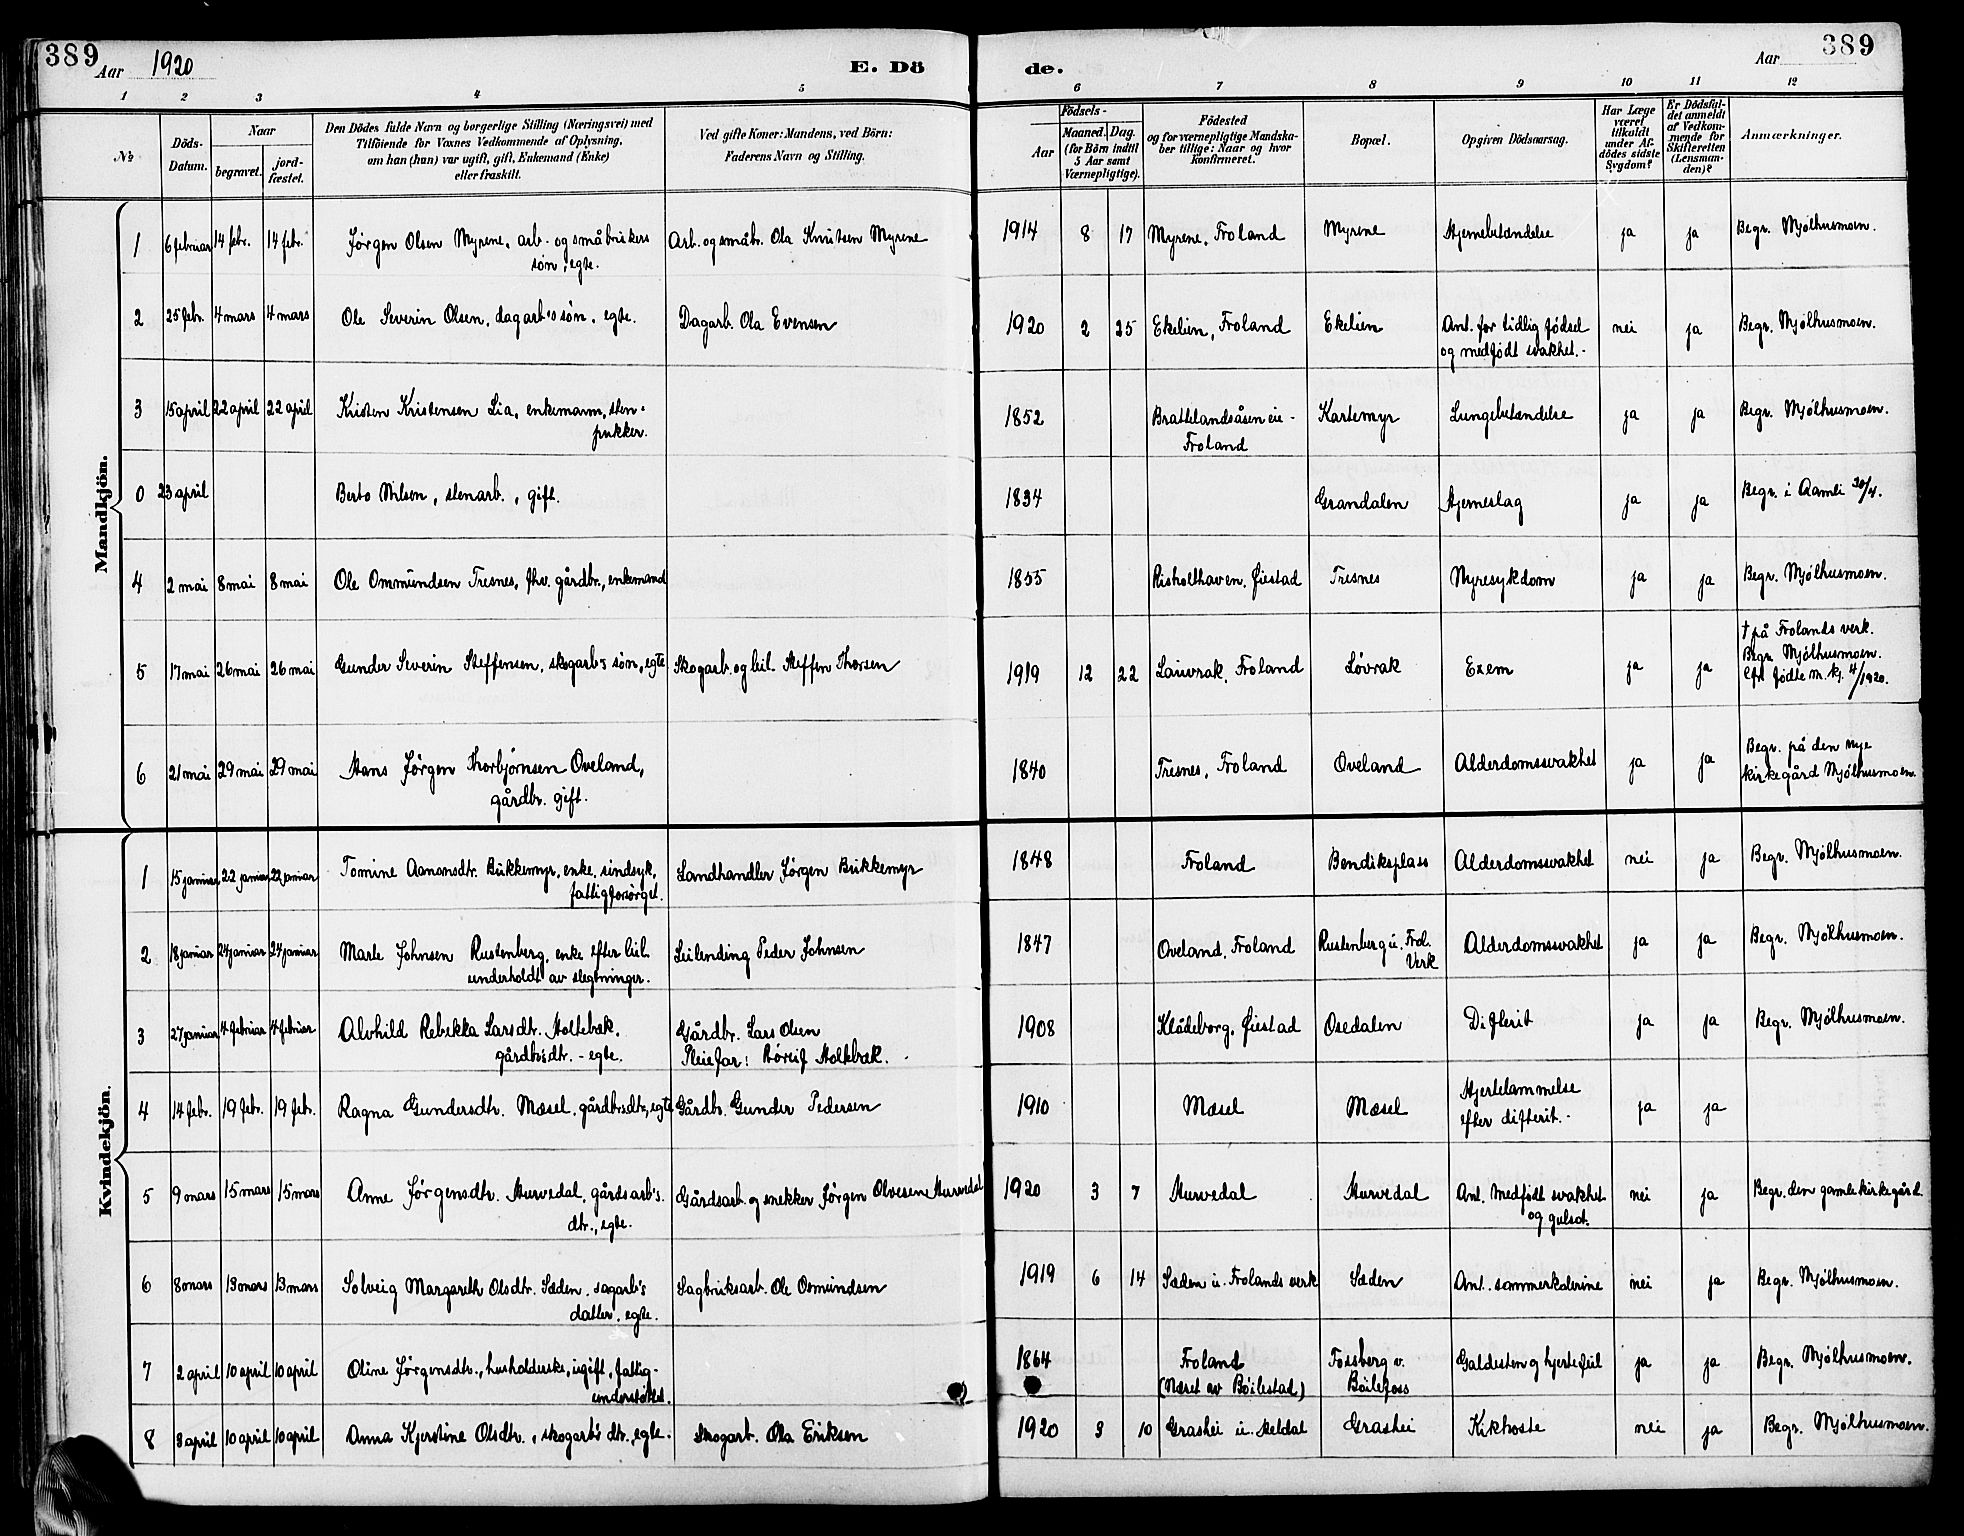 389
Aar 1920
E. Dö
de.
Aar
389
1 2 3 4 5 6 7 8 9 10 11 12
№
Döds-Datum.
Naar
begravet. jord-fæstet.
Den Dödes fulde Navn og borgerlige Stilling (Næringsvei) med
Tilföiende for Voxnes Vedkommende af Oplysning,
om han (hun) var ugift, gift, Enkemand (Enke)
eller fraskilt.
Ved gifte Koner: Mandens, ved Börn:
Faderens Navn og Stilling.
Födsels-
Aar
Maaned. Dag.
(for Börn indtil
5 Aar samt
Værnepligtige).
Födested
og for værnepligtige Mandska-
ber tillige: Naar og hvor
konfirmeret.
Bopæl.
Opgiven Dödsaarsag.
Har Læge
været
tilkaldt
under Af-
dödes sidste
Sygdom?
Er Dödsfal-
det anmeldt
af Vedkom-
mende for
Skifteretten
(Lensman-
den)?
Anmærkninger.
Mandkjön.
1 6 februar 14 febr. 14 febr. Jørgen Olsen Myrene, arb. og småbrukers Arb. og småbr. Ola Knutsen Myrene 1914 8 17 Myrene, Froland Myrene Hjernebetændelse ja ja Begr. Mjølhusmoen.
søn, egte.
2 25 febr. 4 mars 4 mars Ole Severin Olsen, dagarb's søn, egte. Dagarb. Ola Evensen 1920 2 25 Ekelien, Froland Ekelien Ant. for tidlig fødsel nei ja Begr. Mjølhusmoen.
og medfødt svakhet.-
3 15 april 22 april 22 april Kristen Kristensen Lia, enkemann, sten- 1852 Brattelandsåsen eie - Kartemyr Lungebetændelse ja ja Begr. Mjølhusmoen.
pukker. Froland
0 23 april Berto Nilsen, stenarb., gift. 1834 Grandalen Hjerneslag ja ja Begr. i Aamli 30/4.
4 2 mai 8 mai 8 mai Ole Ommundsen Tresnes, fhv. gårdbr., enkemand 1855 Risholthaven, Øiestad Tresnes Nyresykdom ja ja Begr. Mjølhusmoen.
5 17 mai 26 mai 26 mai Gunder Severin Steffensen, skogarb's søn, egte Skogarb. og leil. Steffen Thorsen 1919 12 22 Lauvrak, Froland Løvrak Exem ja ja † på Frolands verk.
Begr. Mjølhusmoen.
Cfr. fødte m. kj. 4/1920.
6 21 mai 29 mai 29 mai Hans Jørgen Thorbjørnsen Oveland, 1840 Tresnes, Froland Oveland Alderdomssvakhet ja ja Begr. på den nye
gårdbr. gift. kirkegård Mjølhusmoen.
Kvindekjön.
1 15 januar 22 januar 22 januar Tomine Aanonsdtr. Bukkemyr, enke, sindsyk, Landhandler Jørgen Bukkemyr 1848 Froland Bendiksplass Alderdomssvakhet nei ja Begr. Mjølhusmoen.
fattigforsørget.
2 18 januar 24 januar 24 januar Marte Johnsen Rustenberg, enke efter leil. Leilending Peder Johnsen 1847 Oveland, Froland Rustenberg u. Frol. Alderdomssvakhet ja ja Begr. Mjølhusmoen.
underholdt av slegtninger. Verk
3 27 januar 4 februar 4 februar Alvhild Rebekka Larsdtr. Holtebæk. Gårdbr. Lars Olsen 1908 Klødeborg, Øiestad Osedalen Difterit ja ja Begr. Mjølhusmoen.
gårdbrs dtr. - egte. Pleiefar: Holtebæk.
4 14 febr. 19 febr. 19 febr. Ragna Gundersdtr. Mæsel, gårdbrs dtr, egte Gårdbr. Gunder Pedersen 1910 Mæsel Mæsel Hjertelammelse ja ja
efter difterit.-
5 9 mars 15 mars 15 mars Anne Jørgensdtr. Hurvedal, gårdsarb's. Gårdsarb. og snekker Jørgen Olvesen Hurvedal 1920 3 7 Hurvedal Hurvedal Ant. Medfødt svakhet nei ja Begr. den gamle kirkegård
dtr., egte. og gulsot.
6 8 mars 13 mars 13 mars Solveig Margareth Olsdtr. Sæden, sagarb's Sagbruksarb. Ole Osmundsen 1919 6 14 Sæden u. Frolands verk Sæden Ant. sommerkolerine nei ja Begr. Mjølhusmoen.
datter, egte.
7 2 april 10 april 10 april Oline Jørgensdtr., husholderske, ugift, fattig- 1864 Froland Fossberg v. Galdesten og hjertefeil ja ja Begr. Mjølhusmoen.
understøttet. (Næret av Bøilestad) Bøilefoss
8 3 april 10 april 10 april Anna Kjerstine Olsdtr., skogarb's dtr., egte. Skogarb. Ola Eriksen 1920 3 10 Grashei u. Heldal Grashei Kikhoste nei ja Begr. Mjølhusmoen.